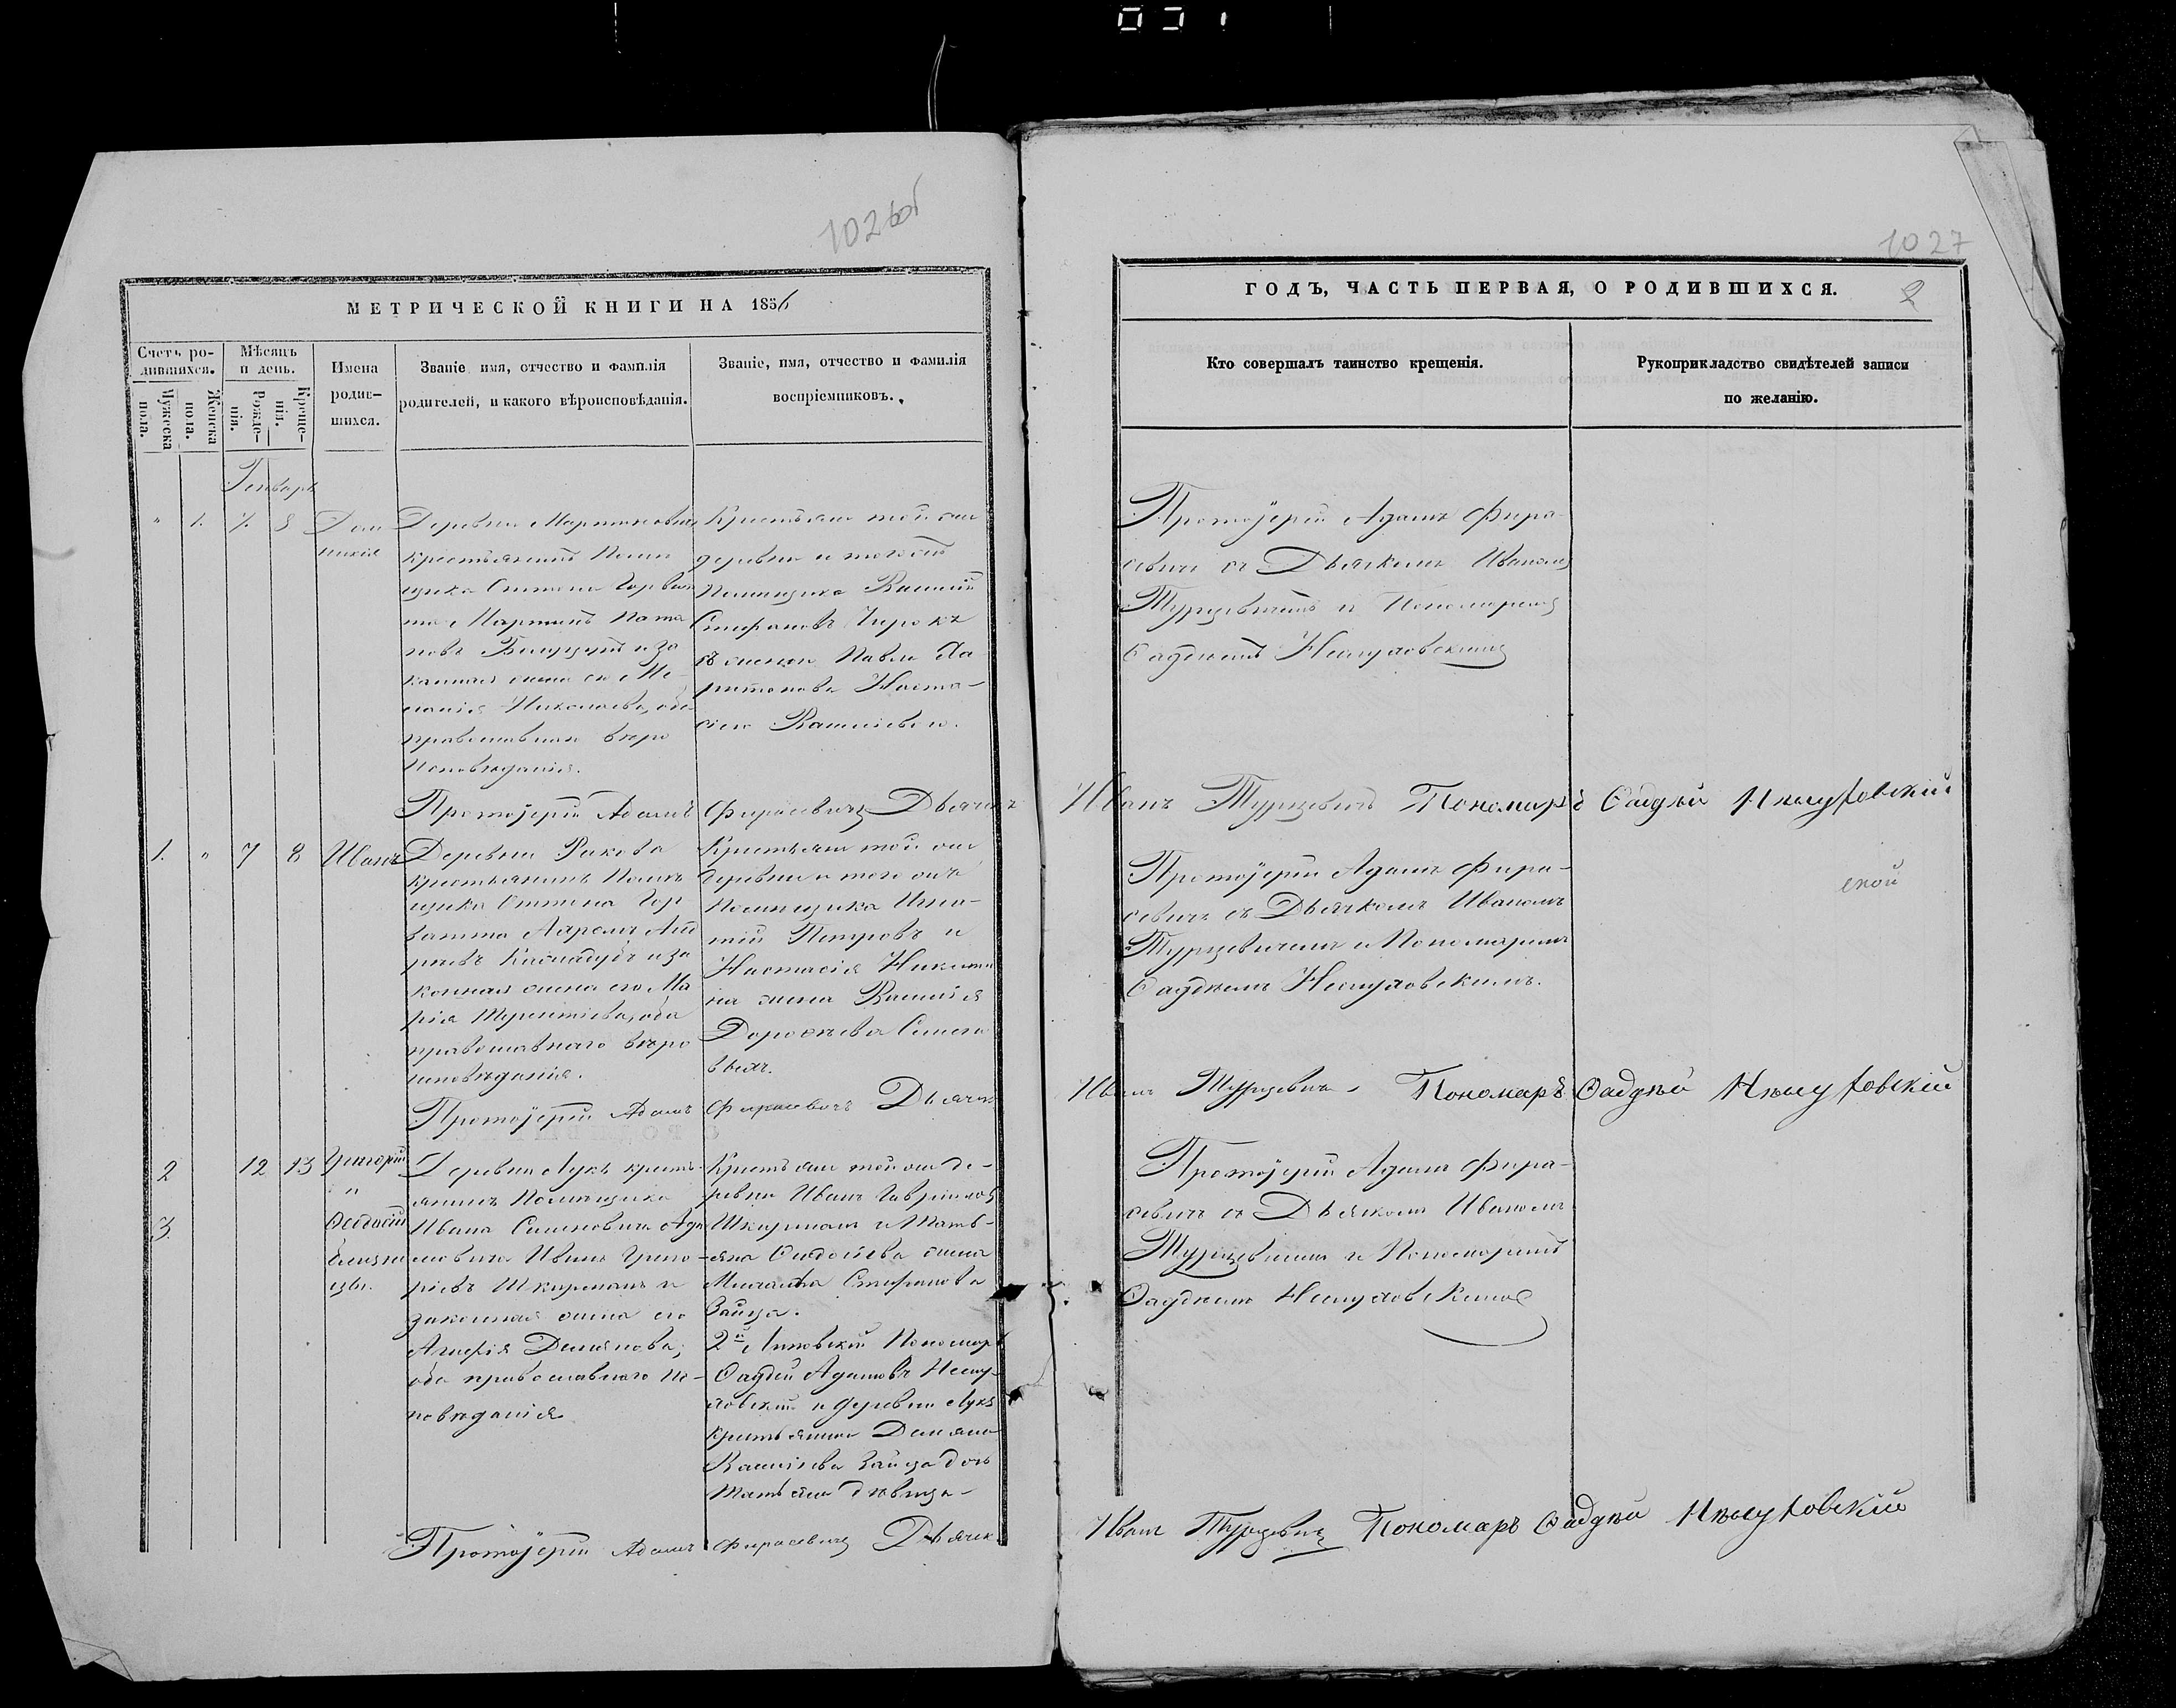 1026об
МЕТРИЧЕСКОЙ КНИГИ НА 1856
Счетъ ро-
дившихся.
Мѣсяцъ
и день.
Мужеска
пола.
Женска
пола.
Рожде-
нія.
Креще-
нія.
Имена
родив-
шихся.
Званіе имя, отчество и фамилія
родителей, и какого вѣроисповѣданія.
Званіе, имя, отчество и фамилія
воспріемниковъ.
Генварь
" 1. 7. 8 Дом
никія
Деревни Мартиновки
крестьянинъ Помѣ
щика Оттона Горват
та Мартинъ Пота
повъ и за
конная жена его Ме
ланія Николаева, оба
православнаго вѣро
исповѣданія.
Крестьяне той же
деревни и того жъ
Помѣщика Василій
Стефановъ
съ женою Павла Ха
ритонова Наста-
сіею Василіевою.
Протоіерей Адамъ Фирасевичъ Дьячекъ
1. " 7 8 Иванъ
Деревни Ракова
крестьянинъ Помѣ
щика Оттона Гор
ватта Ааронъ Анд
реевъ и за
конная жена его Ма
рія Терентіева, оба
православнаго вѣро
исповѣданія.
Крестьяне той же
деревни и того жъ
Помѣщика Игна-
тій Петровъ и
Настасія Никити
на жена Василія
Дорофѣева
Протоіерей Адамъ Фирасевичъ Дьячекъ
2 12 13 Григорій
и
3. Ѳеодосій
близне
цы.
Деревни Лукъ кресть-
янинъ Помѣщика
Ивана Семеновича Ада
мовича Иванъ Григо-
ріевъ Шкирманъ и
законная жена его
Агафія Демянова,
оба православнаго ис-
повѣданія
Крестьяне той же де-
ревни Иванъ Гавріиловъ
Шкирманъ и Тать-
яна жена
Михаила Стефанова
Зайца.
2й Липовскій Пономарь
Ѳаддей Адамовъ Нещу-
ховскій и деревни Лукъ
крестьянина Демяна
Василіева Зайца дочь
Татьяна дѣвица-
Протоіерей Адамъ Фирасевичъ Дьячек
1027
ГОДЪ, ЧАСТЬ ПЕРВАЯ, О РОДИВШИХСЯ.
2
Кто совершалъ таинство крещенія.
Рукоприкладство свидѣтелей записи
по желанію.
Протоіерей Адамъ Фира-
севичъ съ Дьячкомъ Иваномъ
Турцевичемъ и Пономаремъ
Ѳаддеемъ Нещуховскимъ
Иванъ Турцевичъ Пономаръ Ѳаддѣй Нѣщуховскій
Протоіерей Адамъ Фира-
севичъ съ Дьячкомъ Иваномъ
Турцевичемъ и Пономаремъ
Ѳаддеемъ Нещуховскимъ.
Иванъ Турцевичъ Пономаръ Ѳаддѣй Нѣщуховскій
Протоіерей Адамъ Фира-
севичъ съ Дьячкомъ Иваномъ
Турцевичемъ и Пономаремъ
Ѳаддеемъ Нещуховскимъ
Иванъ Турцевичъ Пономаръ Ѳаддѣй Нѣщуховскій